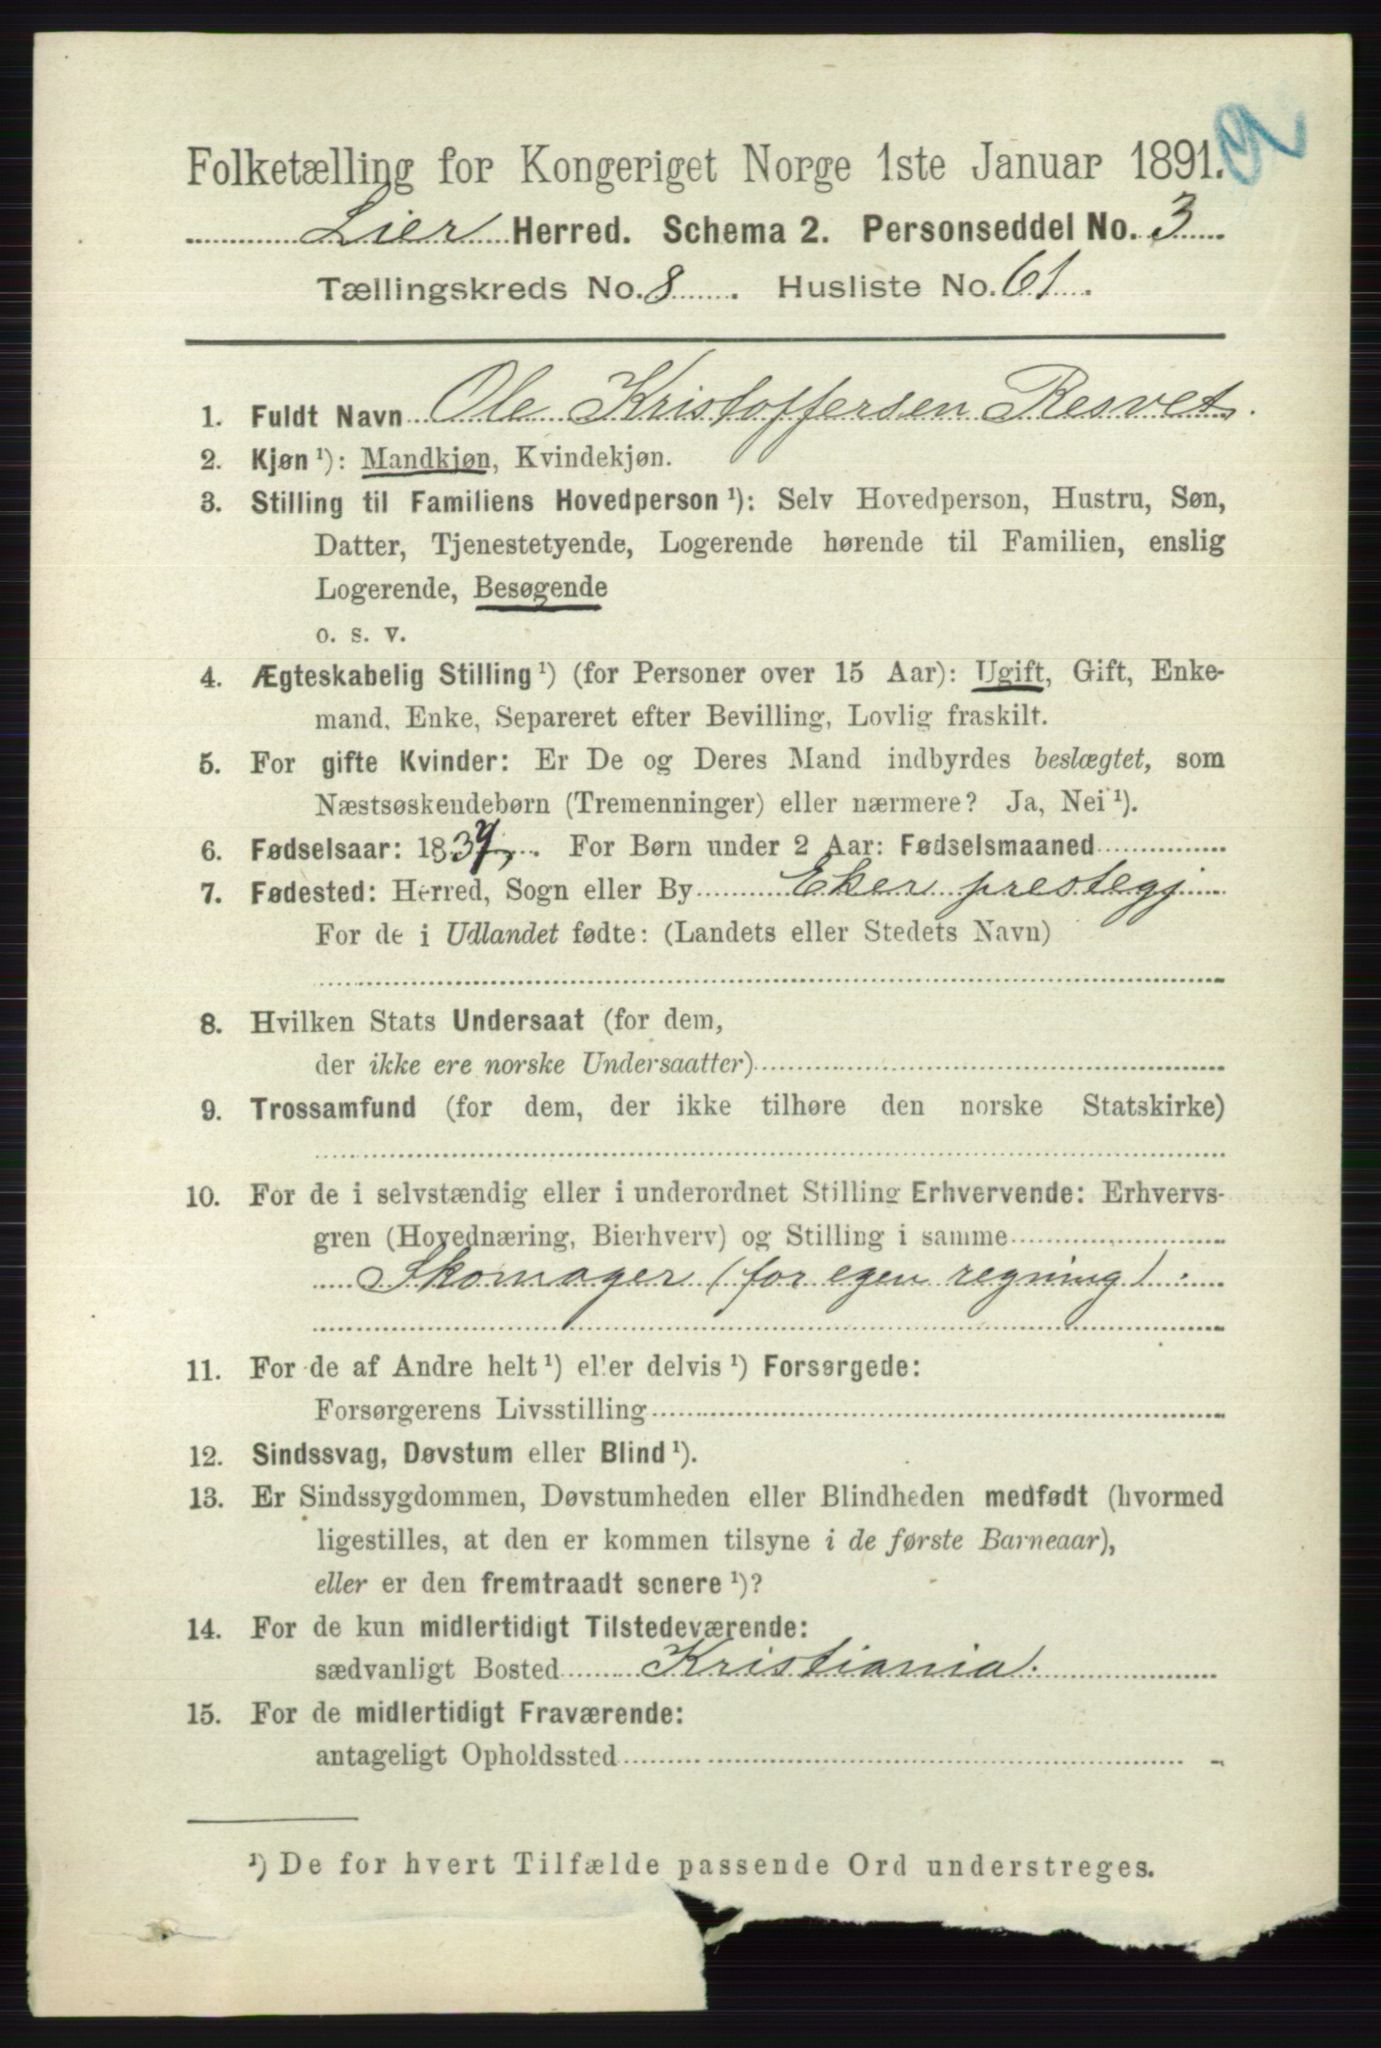 Folketælling for Kongeriget Norge 1ste Januar 1891.
Lier Herred. Schema 2. Personseddel No. 3
Tællingskreds No. 8. Husliste No. 61.
1. Fuldt Navn Ole Kristoffersen Resvet.
2. Kjøn ¹): Mandkjøn, Kvindekjøn.
3. Stilling til Familiens Hovedperson ¹): Selv Hovedperson, Hustru, Søn,
Datter, Tjenestetyende, Logerende hørende til Familien, enslig
Logerende, Besøgende
o. s. v.
4. Ægteskabelig Stilling ¹) (for Personer over 15 Aar): Ugift, Gift, Enke-
mand, Enke, Separeret efter Bevilling, Lovlig fraskilt.
5. For gifte Kvinder: Er De og Deres Mand indbyrdes beslægtet, som
Næstsøskendebørn (Tremenninger) eller nærmere? Ja, Nei ¹).
6. Fødselsaar: 1837. For Børn under 2 Aar: Fødselsmaaned
7. Fødested: Herred, Sogn eller By Eker prestegj
For de i Udlandet fødte: (Landets eller Stedets Navn)
8. Hvilken Stats Undersaat (for dem,
der ikke ere norske Undersaatter)
9. Trossamfund (for dem, der ikke tilhøre den norske Statskirke)
10. For de i selvstændig eller i underordnet Stilling Erhvervende: Erhvervs-
gren (Hovednæring, Bierhverv) og Stilling i samme
Skomager (for egen regning).
11. For de af Andre helt ¹) eller delvis ¹) Forsørgede:
Forsørgerens Livsstilling
12. Sindssvag, Døvstum eller Blind ¹).
13. Er Sindssygdommen, Døvstumheden eller Blindheden medfødt (hvormed
ligestilles, at den er kommen tilsyne i de første Barneaar),
eller er den fremtraadt senere ¹)?
14. For de kun midlertidigt Tilstedeværende:
sædvanligt Bosted Kristiania.
15. For de midlertidigt Fraværende:
antageligt Opholdssted
¹) De for hvert Tilfælde passende Ord understreges.